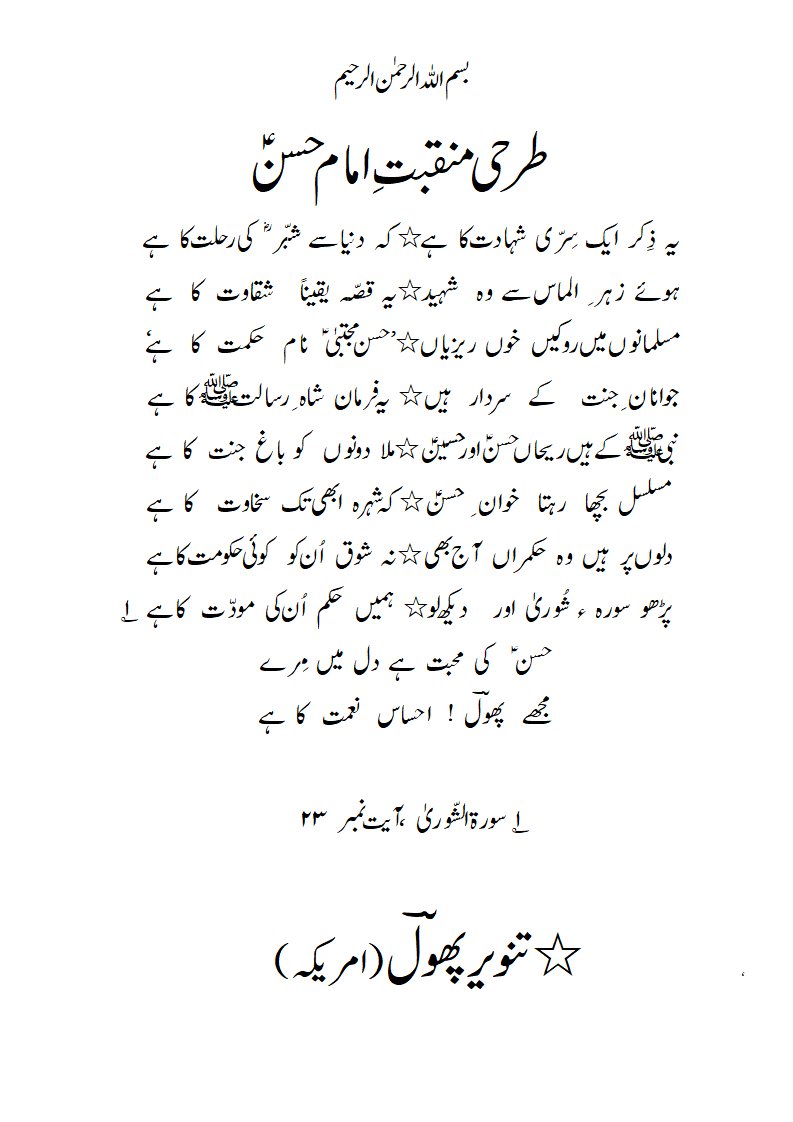 بسم اللہ الرحمٰن الرحیم
طرحی منقبتِ امام حسنؑ
یہ ذِکر ایک سِرّی شہادت کا ہے☆کہ دنیا سے شبّرؓ کی رحلت کا ہے
ہوئے زہرِ الماس سے وہ شہید☆یہ قصّہ یقیناً شقاوت کا ہے
مسلمانوں میں روکیں خوں ریزیاں☆’حسن مجتبیٰؑ نام حکمت کا ہے‘
جوانانِ جنت کے سردار ہیں☆ یہ فرمان شاہِ رسالتﷺ کا ہے
نبیﷺ کے ہیں ریحاں حسنؑ اور حسینؑ☆ملا دونوں کو باغ جنت کا ہے
مسلسل بچھا رہتا خوانِ حسنؑ☆کہ شہرہ ابھی تک سخاوت کا ہے
دلوں پر ہیں وہ حکمراں آج بھی☆نہ شوق اُن کو کوئی حکومت کا ہے
پڑھو سورہ ء شُوریٰ اور دیکھ لو☆ ہمیں حکم اُن کی مودّت کا ہے ؂۱
حسنؑ کی محبت ہے دل میں مِرے
مجھے پھولؔ ! احساس نعمت کا ہے
؂۱ سورۃ الشّوریٰ ،آیت نمبر ۲۳
☆ تنویر پھولؔ (امریکہ)